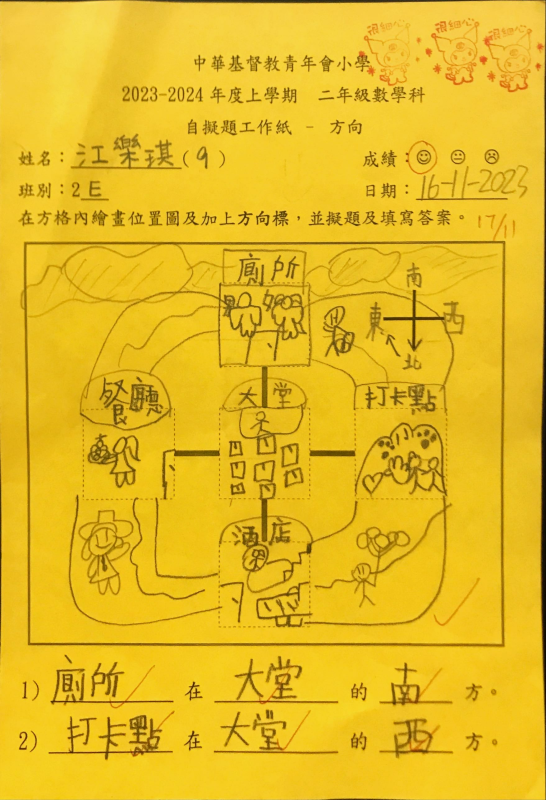 很細心 很細心 很細心
中華基督教青年會小學
2023-2024 年度上學期 二年級數學科
自擬題工作紙 - 方向
姓名：江樂琪(9) 成績：
班別：2E 日期：16-11-2023
在方格內繪畫位置圖及加上方向標，並擬題及填寫答案。 17/11
廁所
南
男 女
東 西
北
餐廳 大堂 打卡點
酒店
1) 廁所 在 大堂 的 南 方。
2) 打卡點 在 大堂 的 西 方。